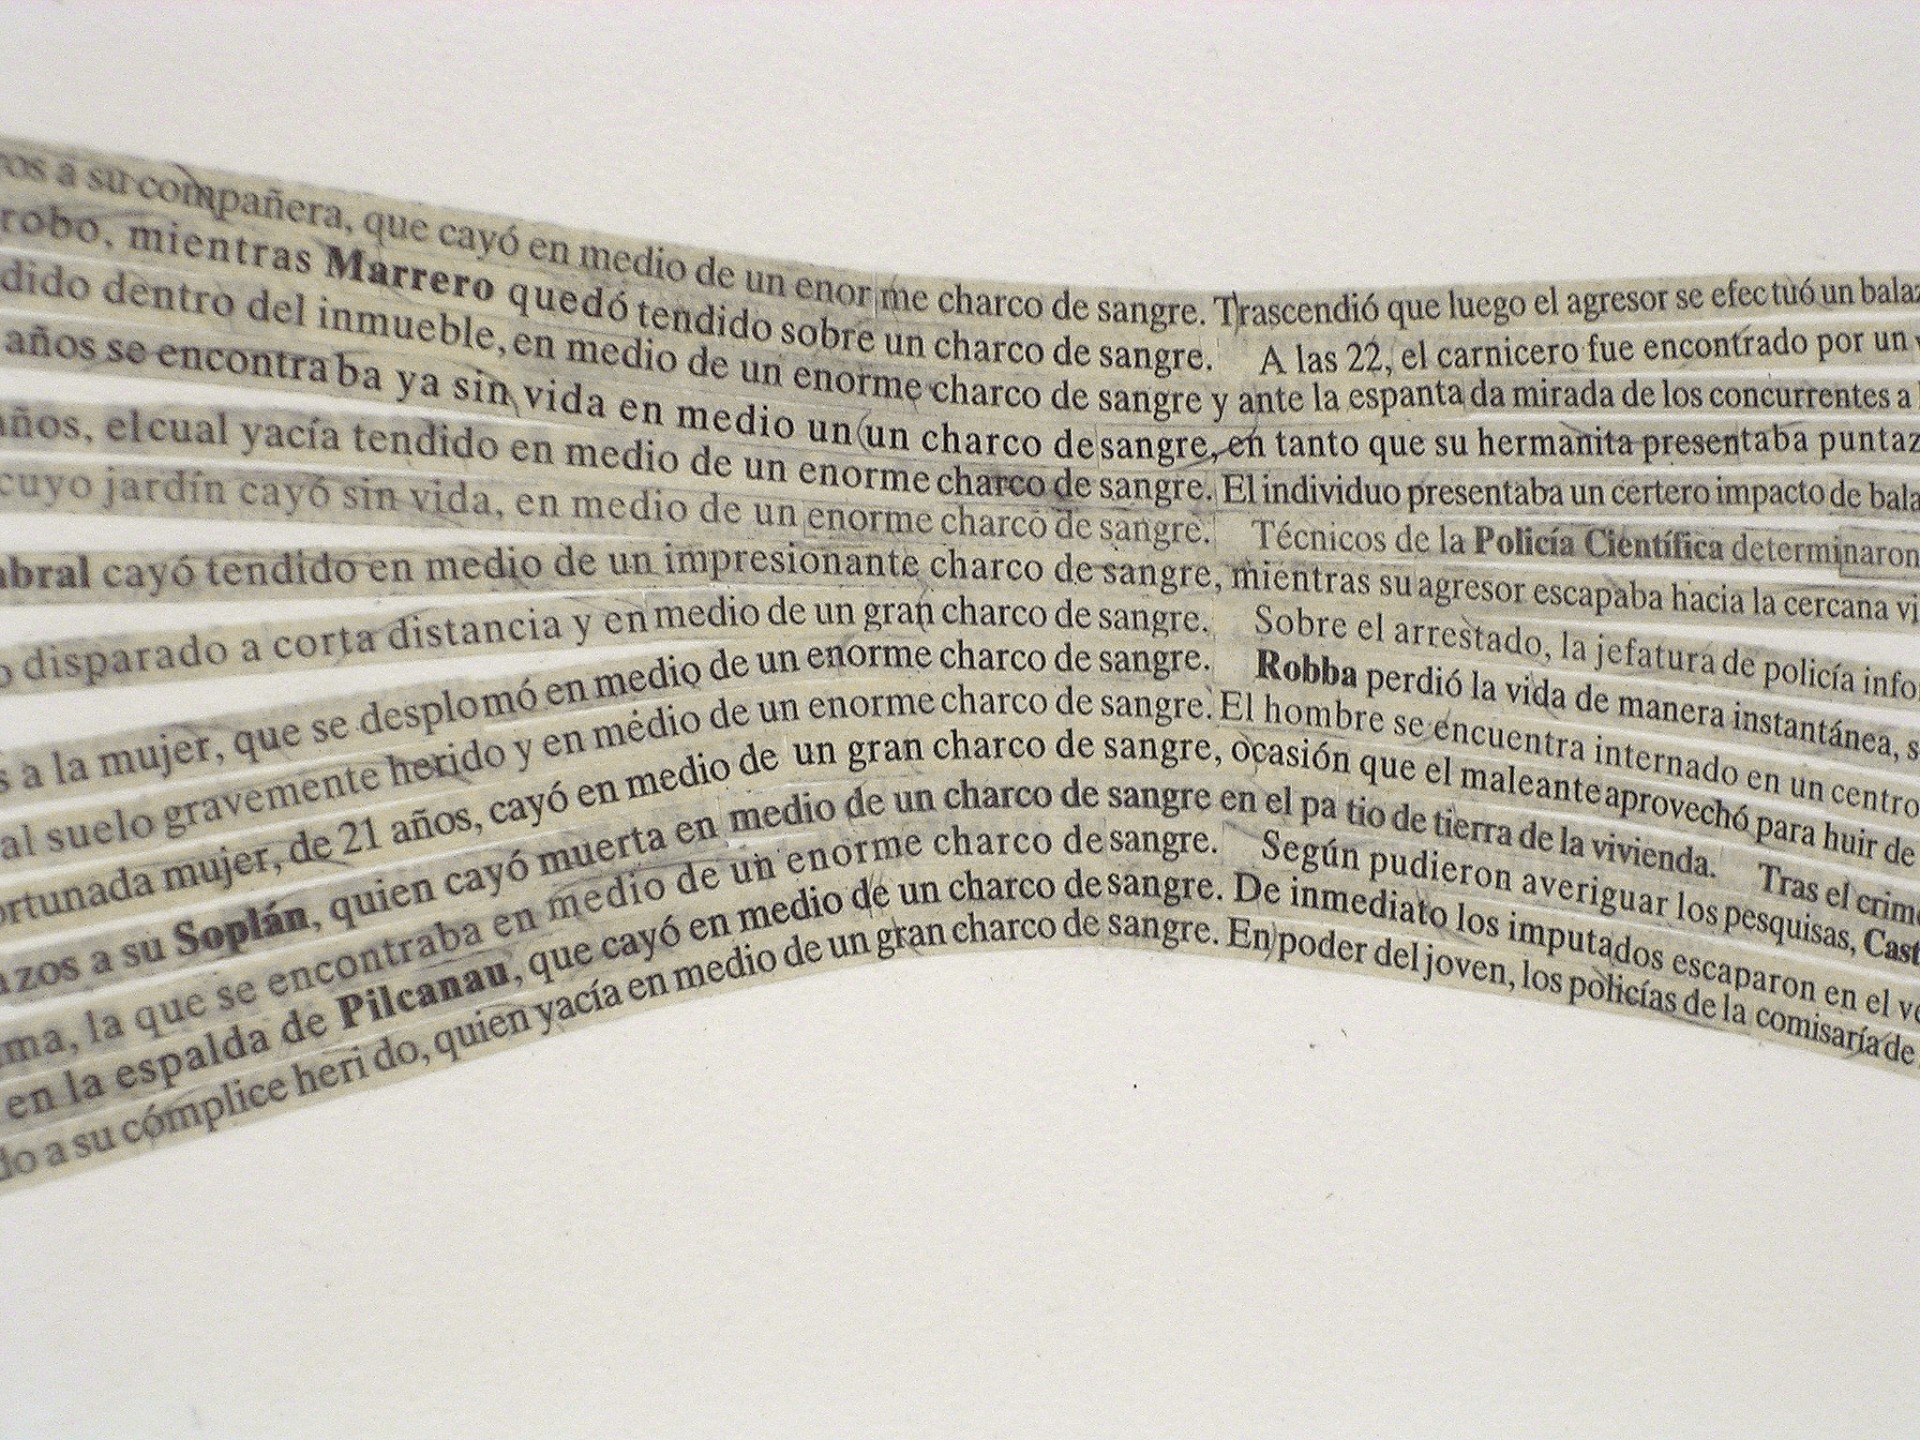 a su compañera, que cayó en medio de un enor me charco de sangre. Trascendió que luego el agresor se efec tuó un
robo, mientras Marrero quedó tendido sobre un charco de sangre. A las 22, el carnicero fue encontrado por un
dentro del inmueble, en medio de un enorme charco de sangre y ante la espanta da mirada de los concurrentes a
años se encontra ba ya sin vida en medio un (un charco de sangre, en tanto que su hermanita presentaba
el cual yacía tendido en medio de un enorme charco de sangre. El individuo presentaba un certero impacto de
cuyo jardín cayó sin vida, en medio de un enorme charco de sangre. Técnicos de la Policía Científica determinaron
cayó tendido en medio de un impresionante charco de sangre, mientras su agresor escapaba hacia la cercana
disparado a corta distancia y en medio de un gran charco de sangre. Sobre el arrestado, la jefatura de policía
a la mujer, que se desplomó en medio de un enorme charco de sangre. Robba perdió la vida de manera instantánea,
al suelo gravemente herido y en medio de un enorme charco de sangre. El hombre se encuentra internado en un centro
mujer, de 21 años, cayó en medio de un gran charco de sangre, ocasión que el maleante aprovechó para huir de
a su Soplán, quien cayó muerta en medio de un charco de sangre en el pa tio de tierra de la vivienda. Tras el
la que se encontraba en medio de un enorme charco de sangre. Según pudieron averiguar los pesquisas,
en la espalda de Pilcanau, que cayó en medio de un charco de sangre. De inmediato los imputados escaparon en el
a su cómplice heri do, quien yacía en medio de un gran charco de sangre. En poder del joven, los policías de la comisaría de